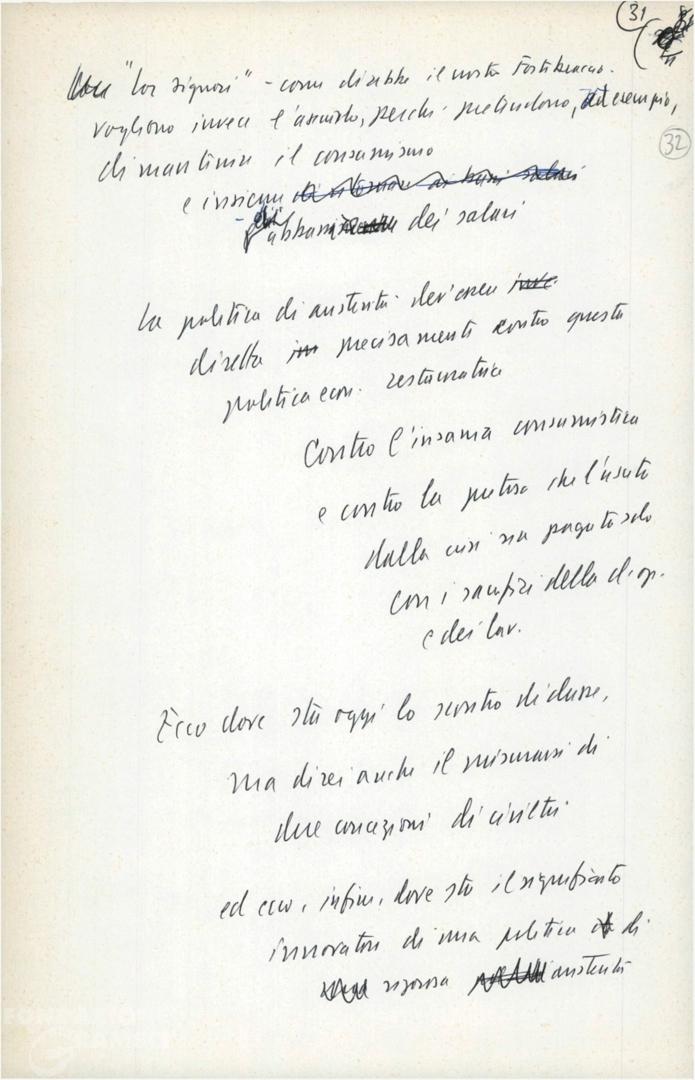 (31
32
Ma "lor signori" - come direbbe il nostro Fortebraccio -
vogliono invece l'assurdo, perché pretendono, ad esempio,
di mantenere il consumismo
e insieme di ritornare ai bassi salari
- gli abbassamenti dei salari
La politica di austerità dev'essere
diretta precisamente contro questa
politica econ. restauratrice
Contro l'insania consumistica
e contro la pretesa che l'uscita
dalla crisi sia pagata solo
con i sacrifizi della cl. op.
e dei lav.
Ecco dove sta oggi lo scontro di classe,
ma direi anche il misurarsi di
due concezioni di civiltà
ed ecco, infine, dove sta il significato
innovatore di una politica di
rigorosa austerità